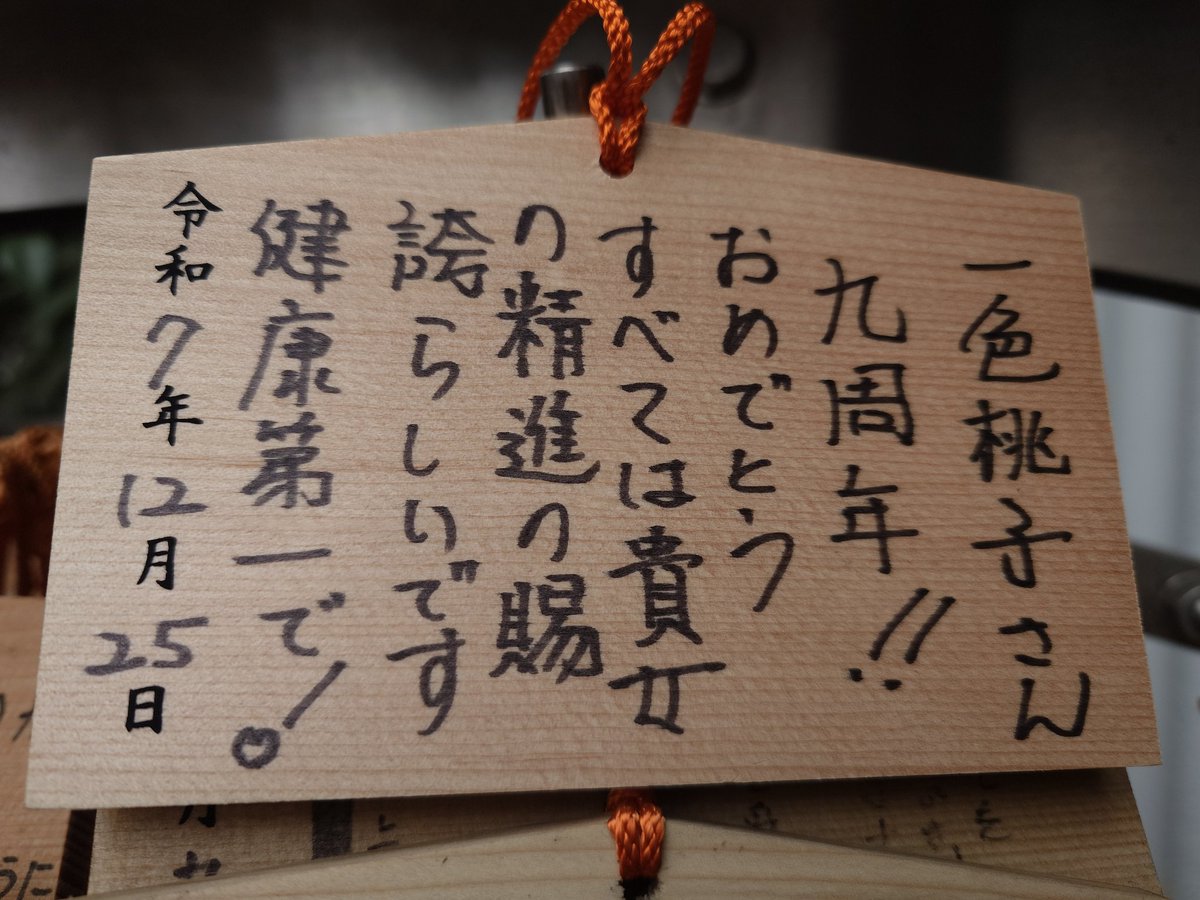 一色桃子さん
九周年!!
おめでとう
すべては貴女
の精進の賜
誇らしいです
健康第一で!
令和7年12月25日